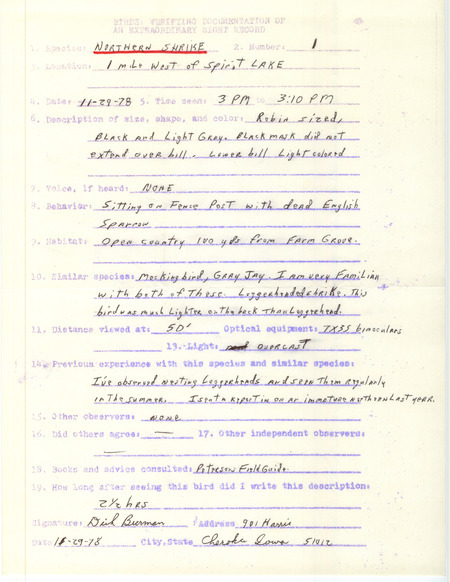 BIRDS: VERIFYING DOCUMENTATION OF
AN EXTRAORDINARY SIGHT RECORD
1. Species: NORTHERN SHRIKE 2. Number: 1
3. Location: 1 mile West of Spirit LAKE
4. Date: 11-29-78 5. Time seen: 3 PM to 3:10 PM
6. Description of size, shape, and color: Robin sized,
Black and Light Gray. Black mask did not
extend over bill. Lower bill Light colored
7. Voice, if heard: NONE
8. Behavior: Sitting on Fence Post with dead English
Sparrow
9. Habitat: Open country 100 yds from Farm Grove.
10. Similar species: Mockingbird, GRAY JAY. I am very Familiar
with both of These. Loggerheaded shrike. This
bird was much Lighter on the back Than Loggerhead.
11. Distance viewed at: 50' Optical equipment: 7X35 binoculars
13. Light: OVERCAST
14. Previous experience with this species and similar species:
I've observed nesting Loggerheads and seen Them regularly
in The summer. I sent a report in on an immature northern Last year.
15. Other observers: NONE
16. Did others agree: — 17. Other independent observers:
—
18. Books and advice consulted: Peterson Field Guide.
19. How long after seeing this bird did I write this description:
2½ hrs
Signature: Dick Bierman Address 901 Harris
Date 11-29-78 City, State Cherokee Iowa 51012